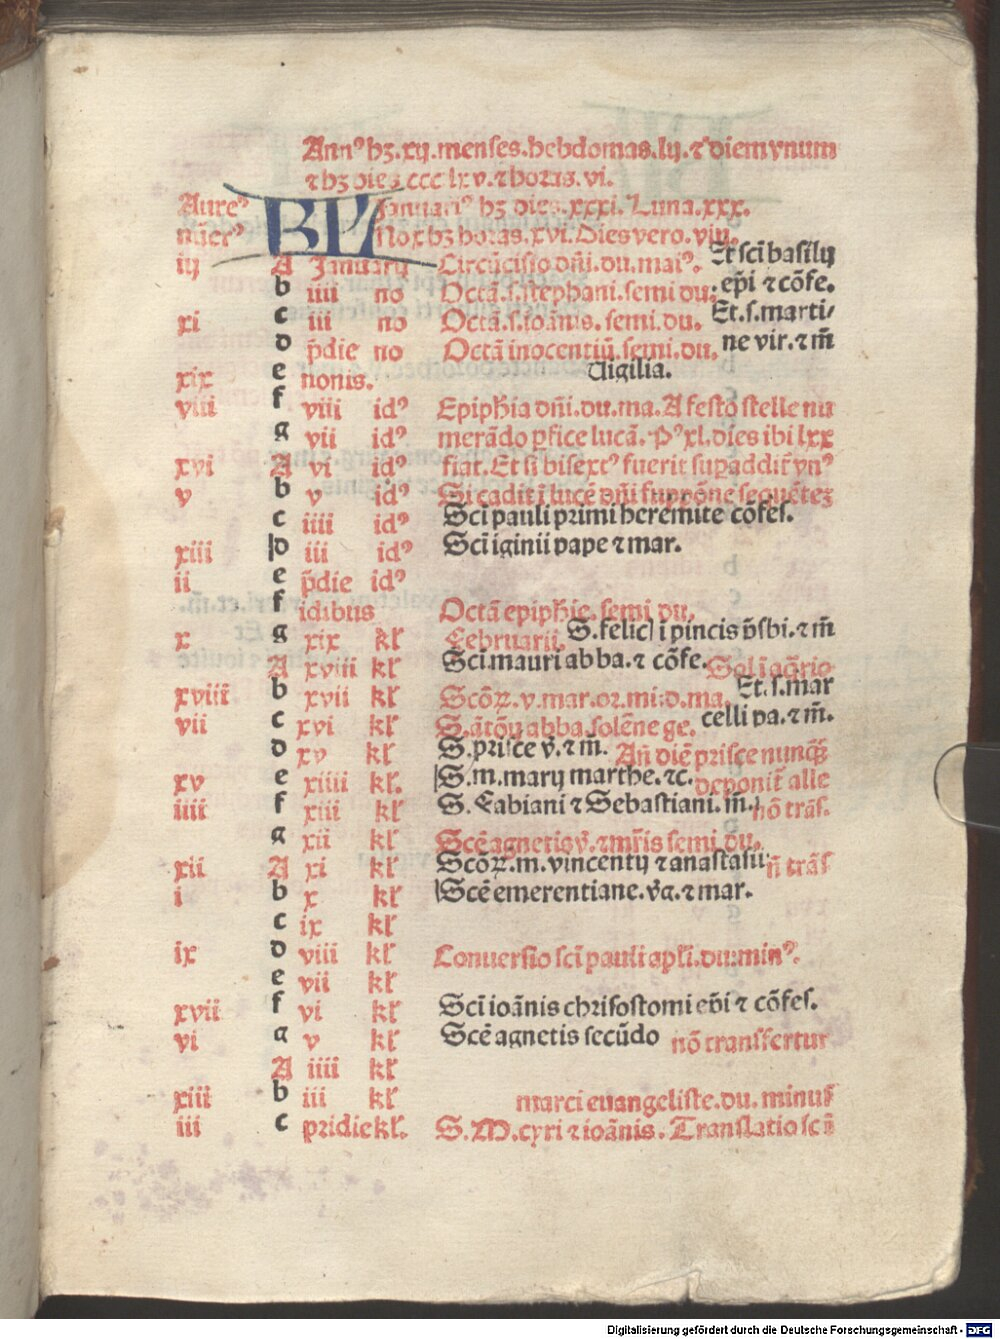 Annꝰ hꝫ.xij.menses.hebdomas.lij.⁊ diem vnum
⁊ hꝫ dies ccc lxv.⁊ horas.vi.
Aureꝰ Januariꝰ hꝫ dies.xxxi. Luna.xxx.
nũerꝰ KL Nox hꝫ horas.xvi.Dies vero.viij.
iij A Januarij Circũcisio dñi.du.maiꝰ. Et sci basilij
b iiii no Octã.s.stephani.semi du. epi ⁊ cõfe.
xi c iii no Octã.s.ioãnis.semi.du. Et.s.marti/
d p̃die no Octã inocentiũ.semi.du. ne vir.⁊ m̃
xix e nonis. Uigilia.
viii f viii idꝰ Epiphĩa dñi.du.ma. A festo stelle nu
g vii idꝰ merãdo pfice lucã. Pꝰ xl.dies ibi lxx
xvi A vi idꝰ fiat. Et si bisextꝰ fuerit supaddit vnꝰ
v b v idꝰ Si cadit ĩ lucẽ dñi suppõne sequẽteꝫ
c iiii idꝰ Sci pauli primi heremite cõfes.
xiii d iii idꝰ Sci iginii pape ⁊ mar.
ii e p̃die idꝰ
f idibus Octã epiphĩe.semi du.
x g xix kl Februarii. S.felicĩ i pincis p̃sbi.⁊ m̃
A xviii kl Sci mauri abba.⁊ cõfe. Sol ĩ aq̃rio
xviii b xvii kl Scõꝝ.v.mar.or.mi:d.ma. Et.s.mar
vii c xvi kl S.ãtõij abba solẽne ge. celli pa.⁊ m̃.
d xv kl S.prisce v̄.⁊ m̃. Añ diẽ prisce nunq̃
xv e xiiii kl. S.m.marij marthe.⁊c. deponit̃ alle
iiii f xiii kl S. Fabiani ⁊ Sebastiani.m̃. nõ trãs.
g xii kl Scẽ agnetis v̄.⁊ mr̃is semi.du.
xii A xi kl Scõꝝ.m.vincentij ⁊ anastasii: ñ trãs
i b x kl Scẽ emerentiane.v̄g.⁊ mar.
c ix kl
ix d viii kl Conuersio sci pauli apli.du:minꝰ.
e vii kl
xvii f vi kl Sci ioãnis chrisostomi ep̃i ⁊ cõfes.
vi g v kl Scẽ agnetis secũdo nõ transfertur
A iiii kl
xiii b iii kl marci euangeliste.du.minus
iii c pridie kl. S.M.cyri ⁊ ioãnis. Translatio sci
Digitalisierung gefördert durch die Deutsche Forschungsgemeinschaft - DFG